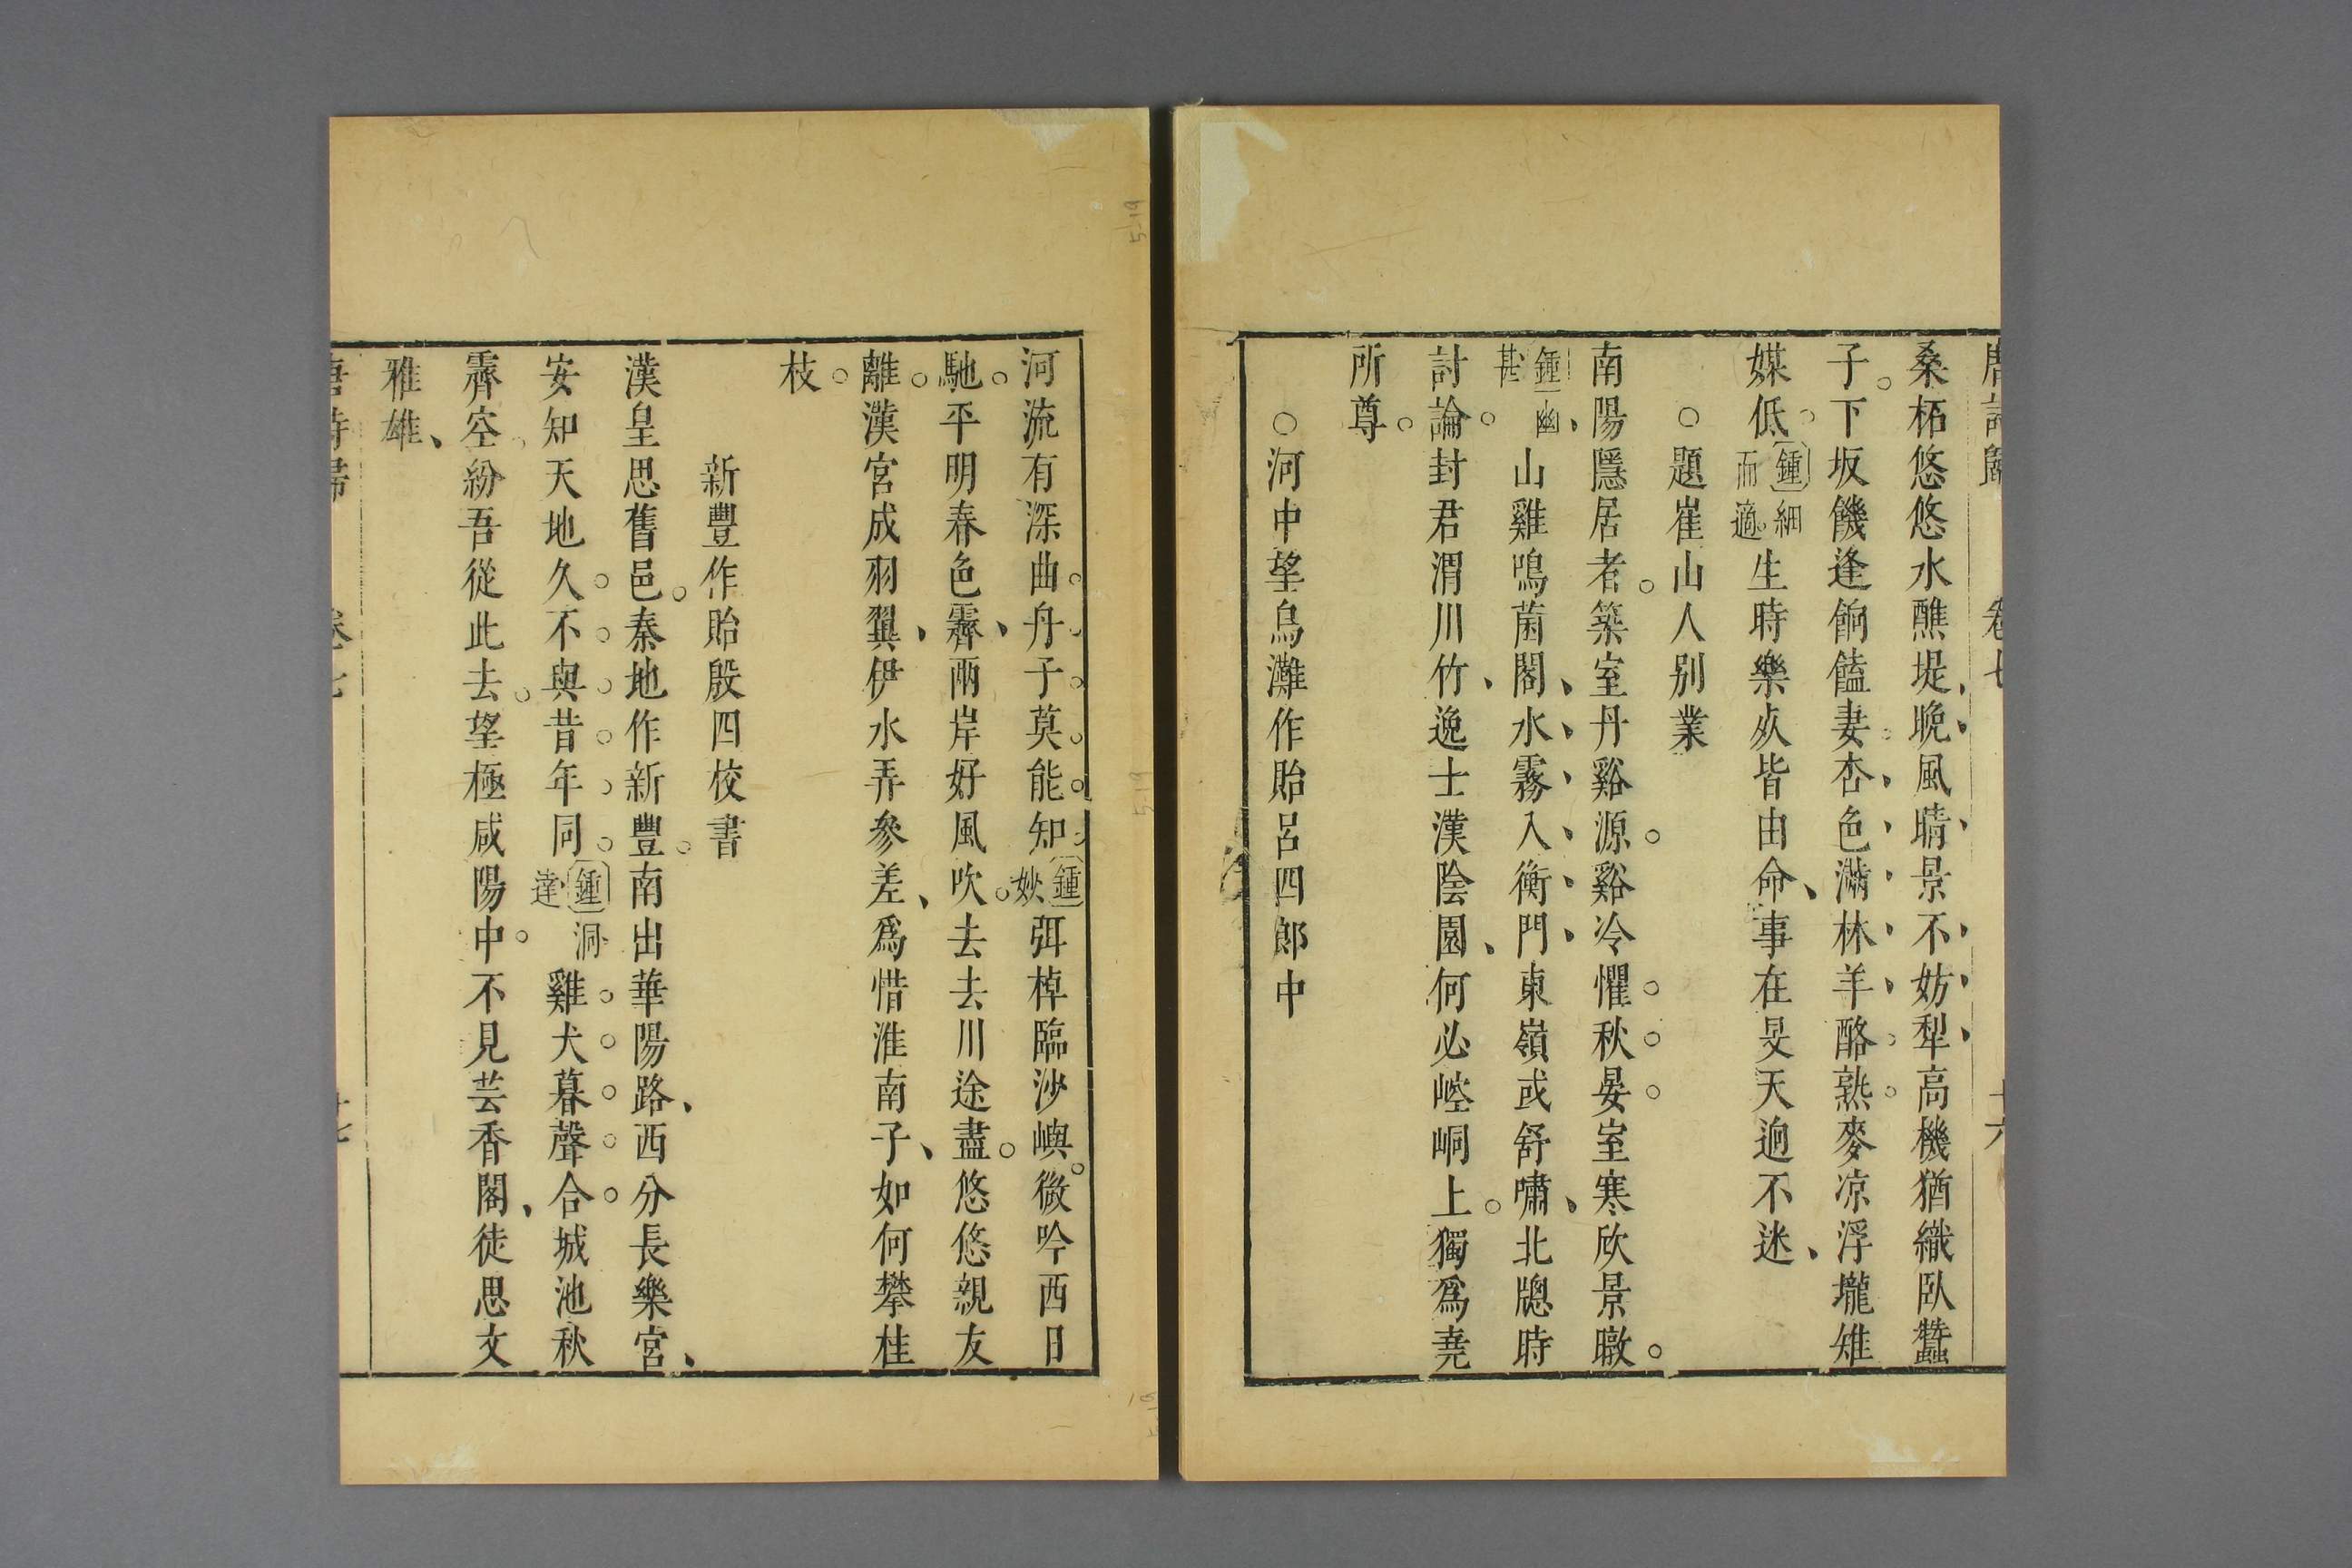 唐詩歸 卷七 十六
桑柘悠悠水醮堤晚風晴景不妨犁高機猶織臥蠶
子下坂饑逢餉饁妻杏色滿林羊酪熟麥凉浮壠雉
媒低鍾細而適生時樂𠨞皆由命事在旻天逈不迷
○題崔山人别業
南陽隱居者築室丹谿源谿冷懼秋晏室寒欣景暾
鍾幽甚山雞鳴菌閣水霧入衡門東嶺或舒嘯北牕時
討論封君渭川竹逸士漢陰園何必崆峒上獨爲堯
所尊
○河中望鳥灘作貽呂四郎中
河流有深曲舟子莫能知鍾妙弭棹臨沙嶼微吟西日
馳平明春色霽兩岸好風吹去去川途盡悠悠親友
離漢宮成羽翼伊水弄參差爲惜淮南子如何攀桂
枝
新豐作貽殷四校書
漢皇思舊邑秦地作新豐南出華陽路西分長樂宮
安知天地久不與昔年同鍾洞達雞犬暮聲合城池秋
霽空紛吾從此去望極咸陽中不見芸香閣徒思文
雅雄
唐詩歸 卷七 十七